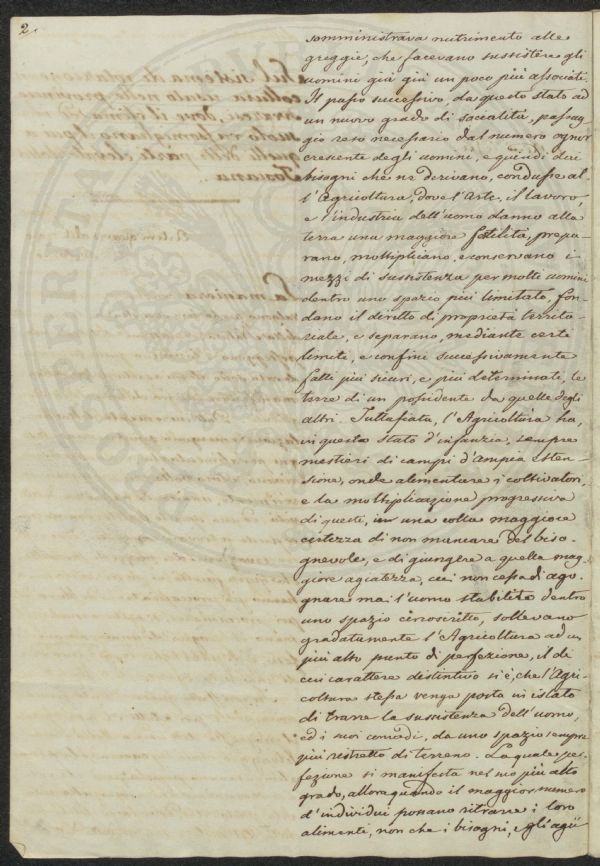 2.
somministrava nutrimento alle
greggie, che facevano sussistere gli
uomini già già un poco più associati.
Il passo successivo, da questo stato ad
un nuovo grado di socialità, passag-
gio reso necessario dal numero ognor
crescente degli uomini, e quindi dei
bisogni che ne derivano, condusse al-
l'Agricoltura, dove l'Arte, il lavoro,
e l'industria dell'uomo danno alla
terra una maggiore fertilità, prepa-
rano, moltiplicano, e conservano i
mezzi di sussistenza per molti uomini
dentro uno spazio più limitato, fon-
dano il diritto di proprietà territo-
riale, e separano, mediante certi
limiti, e confini successivamente
fatti più sicuri, e più determinati, le
terre di un possidente da quelle degli
altri. Tuttafiata, l'Agricoltura ha,
in questo stato d'infanzia, sempre
mestieri di campi d'ampia esten-
sione, onde alimentare i coltivatori,
e la moltiplicazione progressiva
di questi, in una colla maggiore
certezza di non mancare del biso-
gnevole, e di giungere a quella mag-
giore agiatezza, cui non cessa di ago-
gnare mai l'uomo stabilito dentro
uno spazio circoscritto, sollevano
gradatamente l'Agricoltura ad un
più alto punto di perfezione, il di
cui carattere distintivo si è, che l'Agri-
coltura stessa venga posta in istato
di trarre la sussistenza dell'uomo,
ed i suoi comodi, da uno spazio sempre
più ristretto di terreno. La quale per-
fezione si manifesta nel suo più alto
grado, allora quando il maggior numero
d'individui possano ritrarre i loro
alimenti, non che i bisogni, e gli agii